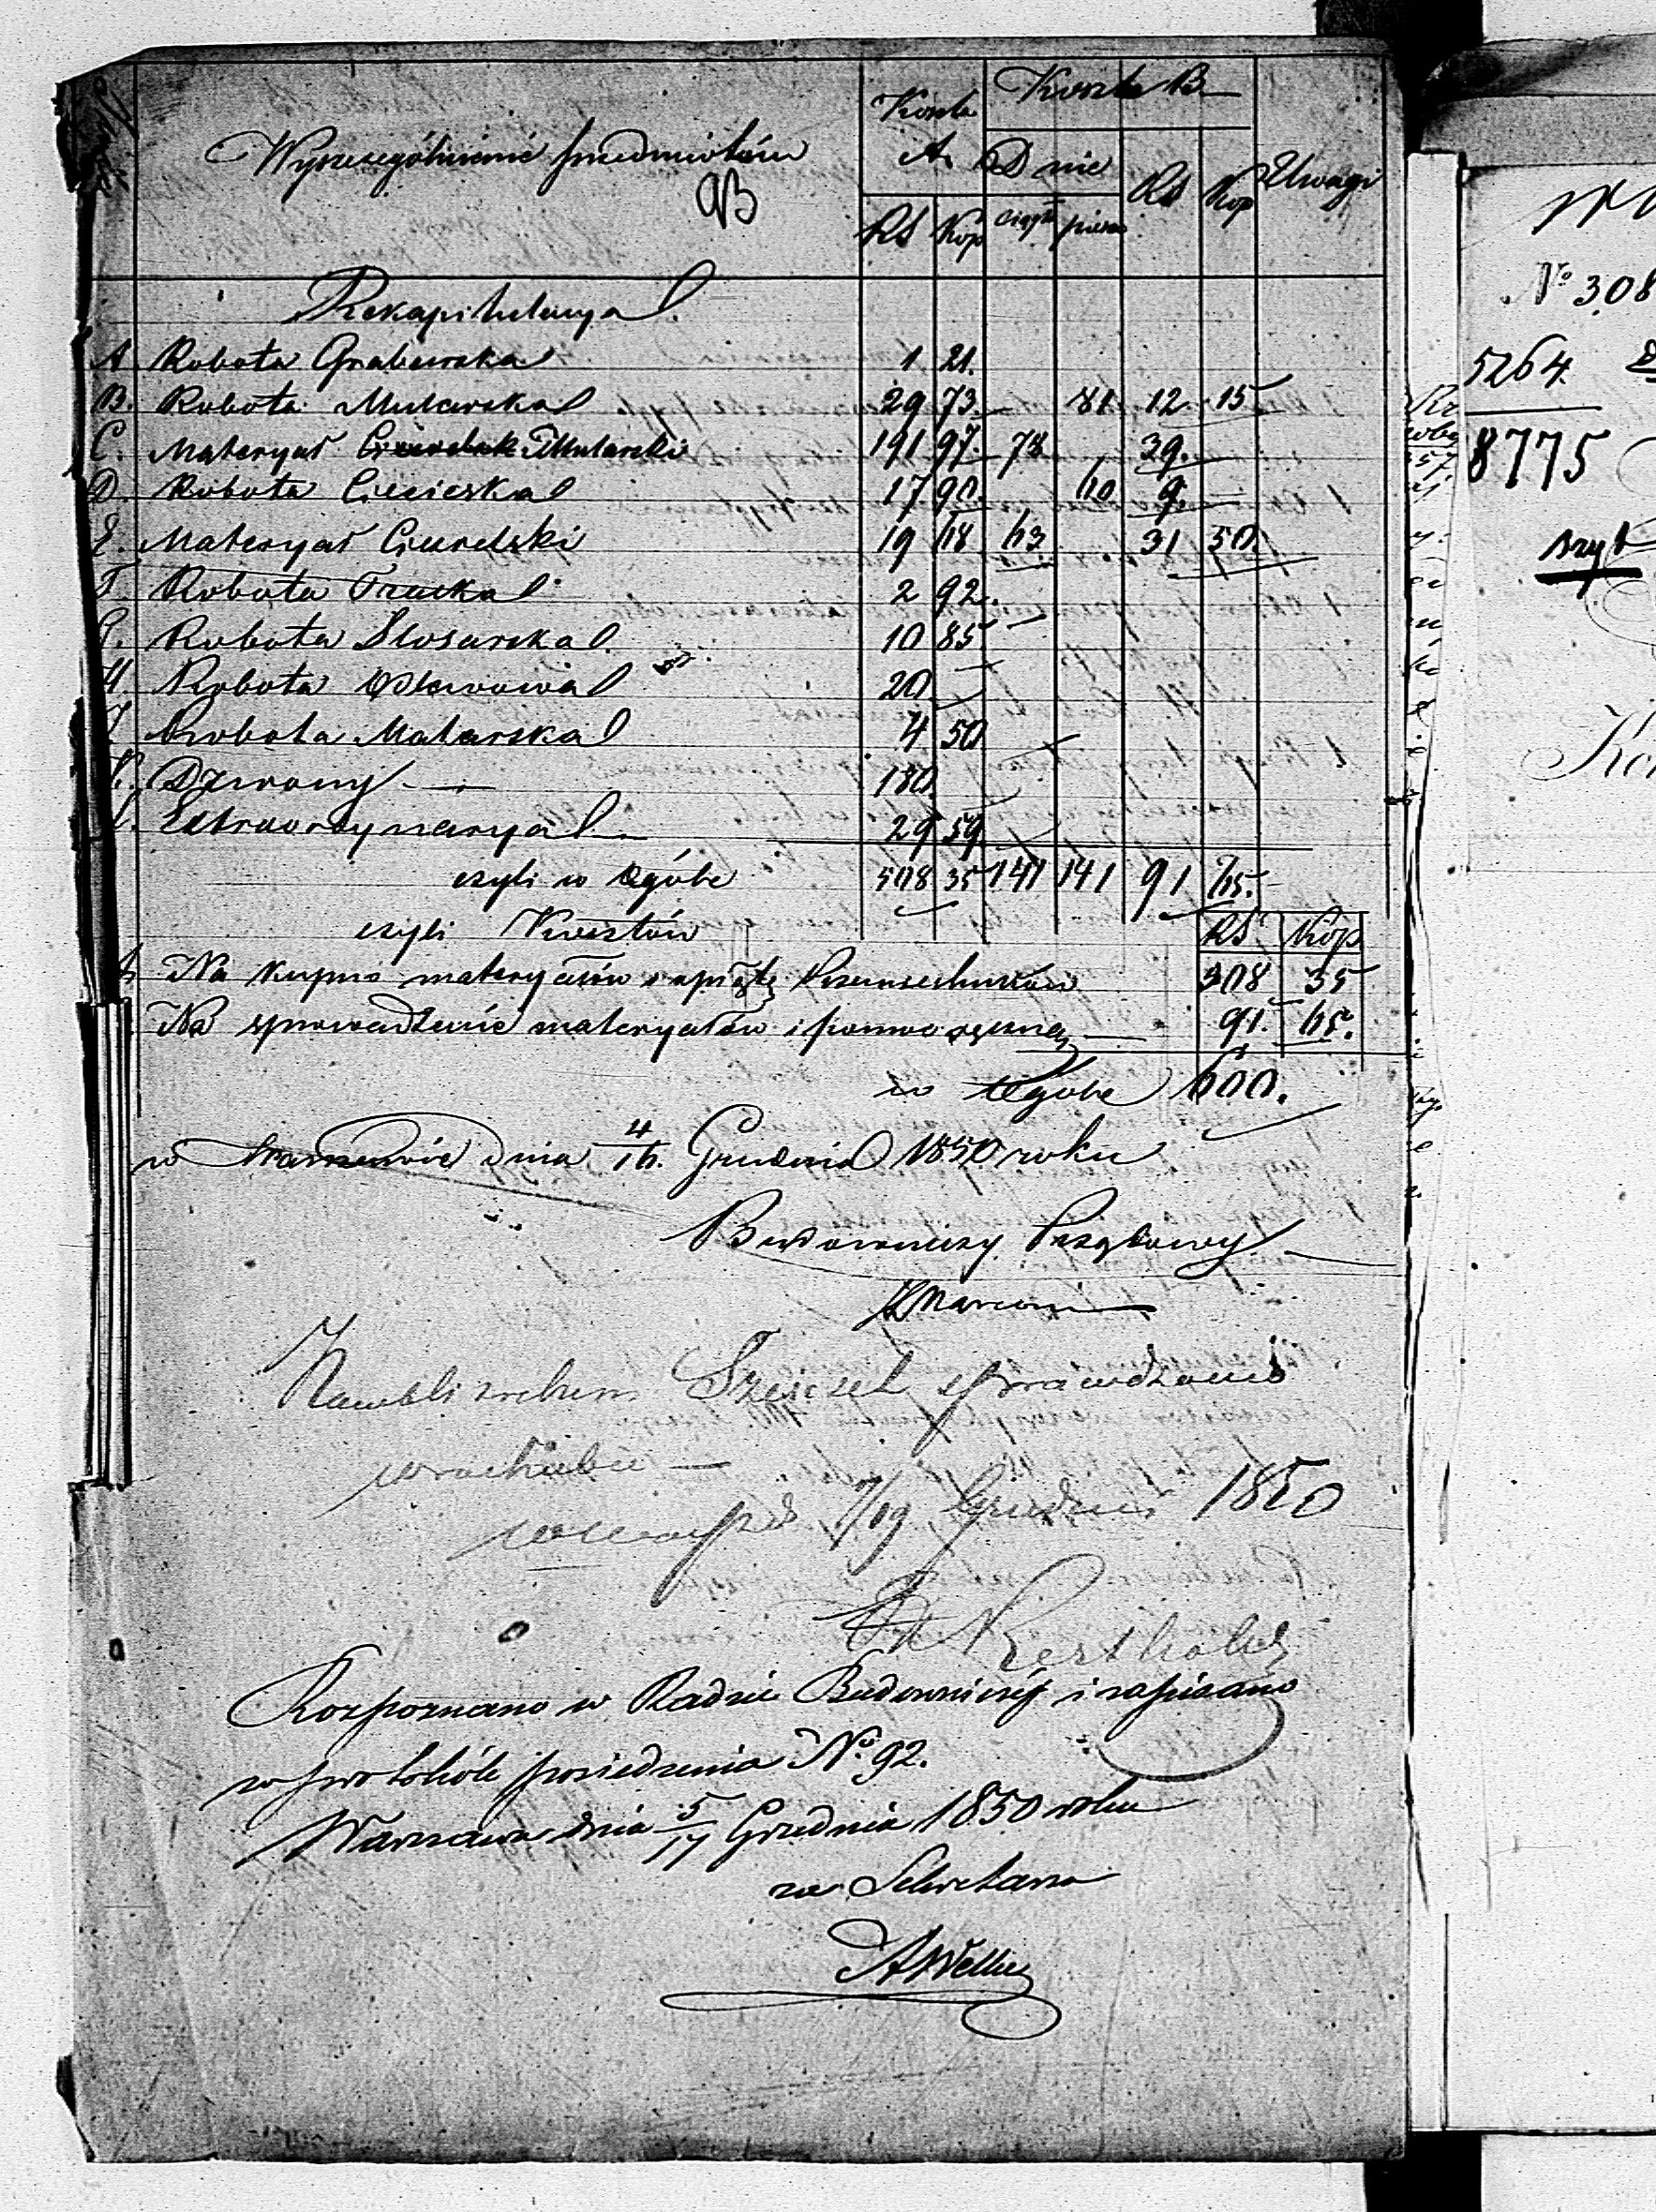 Wyszczególnienie przedmiotów
93
Koszta A. Koszta B Uwagi
Dnie RS Kop
RS Kop ciągłe piesze
Rekapitulacya
A Robota Grabarska 1 21.
B. Robota Mularska 29 73. 81 12. 15
C. Materyał Mularski 191 97. 78 39.
D. Robota Ciesielska 17 90. 60 9.
E. Materyał Ciesielski 19 68 63 31 50.
F. Robota Tracka 2 92.
G. Robota Slosarska 10 85
H. Robota 20
I Robota Malarska 4 50
K. Dzwony 180.
L. Extraordynarya 29 59.
czyli w Ogóle 508 35 141 141 91 65.
czyli Kosztów RS. Kop
Na kupno materyałów i opłatę Rzemieślników 508 35
Na sprowadzenie materyałów i pomoc ręczną 91. 65.
w Ogóle 600.
w dnia 4/16. Grudnia 1850 roku
Budowniczy Rządowy
Marconi
sprawdzono
w rachubie
7/19 Grudnia 1850
Rozpoznano w Radzie Budowniczej i zapisano
w protokóle posiedzenia No. 92.
Warszawa dnia 5/17 Grudnia 1850 roku
za Sekretarza
No 308
5264.
8775